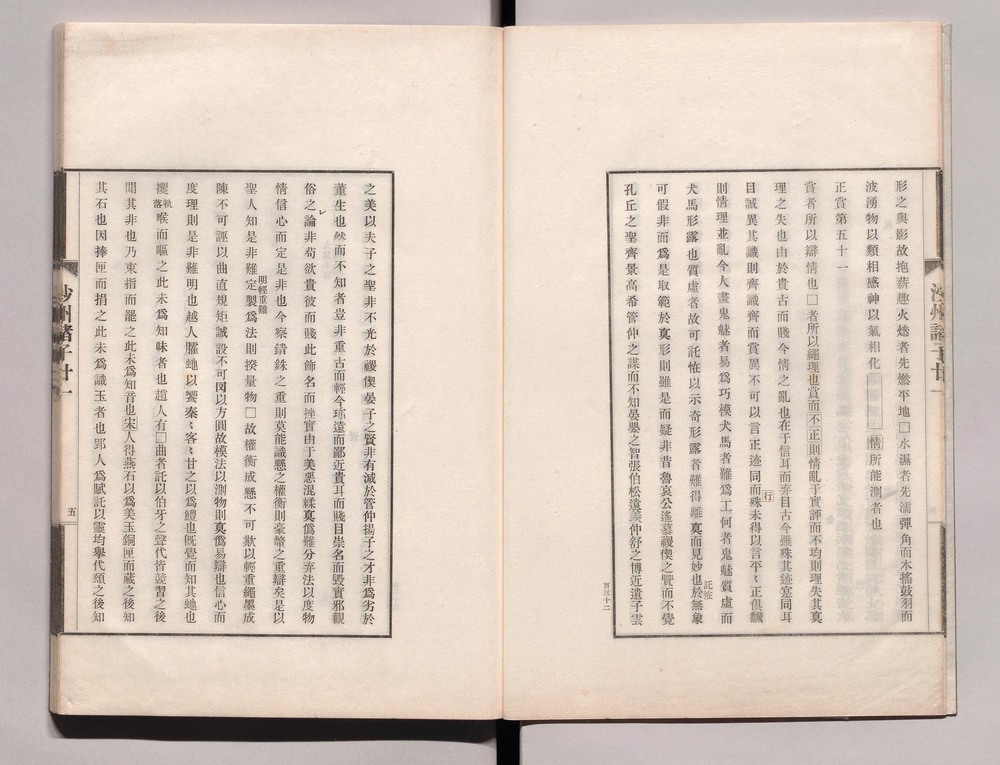 形之與影故抱薪趣火燥者先燃平地□水濕者先濡彈角而木搖鼓羽而
波湧物以類相感神以氣相化
情所能測者也
正賞第五十一
賞者所以辯情也□者所以繩理也賞而不正則情亂于實評而不均則理失其真
理之失也由於貴古而賤今情之亂也在于信耳而弃目古今雖殊其迹塞同耳
目誠異其識則齊識齊而賞異不可以言正迹同而殊未得以言平〻正俱翻
行
則情理並亂今人畫鬼魅者易為巧模犬馬者難為工何者鬼魅質虛而
犬馬形露也質虛者故可託恠以示奇形露者難得離真而見妙也託恠於無象
可假非而為是取範於真形則雖是而疑非昔魯哀公遙慕稷偰之賢而不覺
孔丘之聖齊景高希管仲之謀而不知晏嬰之智張伯松遠羨仲舒之博近遺子雲
百三十二
之美以夫子之聖非不光於稷偰晏子之賢非有減於管仲揚子之才非為劣於
董生也然而不知者豈非重古而輕今珎遠而鄙近貴耳而賤目崇名而毀實邪觀
俗之論非苟欲貴彼而賤此飾名而挫實由于美惡混糅真偽難分弃法以度物
情信心而定是非也今察錙銖之重則莫能識懸之權衡則豪氂之重辯矣是以
聖人知是非難明輕重難定製為法則揆量物□故權衡成懸不可欺以輕重繩墨成
陳不可誣以曲直規矩誠設不可罔以方圓故模法以測物則真偽易辯也信心而
度理則是非難明也越人臛虵以饗秦〻客〻甘之以為鱧也旣覺而知其虵也
攫軌落喉而嘔之此未為知味者也趙人有□曲者託以伯牙之聲代皆競習之後
聞其非也乃束指而罷之此未為知音也宋人得燕石以為美玉銅匣而藏之後知
其石也因捧匣而捐之此未為識玉者也郢人為賦託以靈均擧代頌之後知
沙州諸子廿一
五